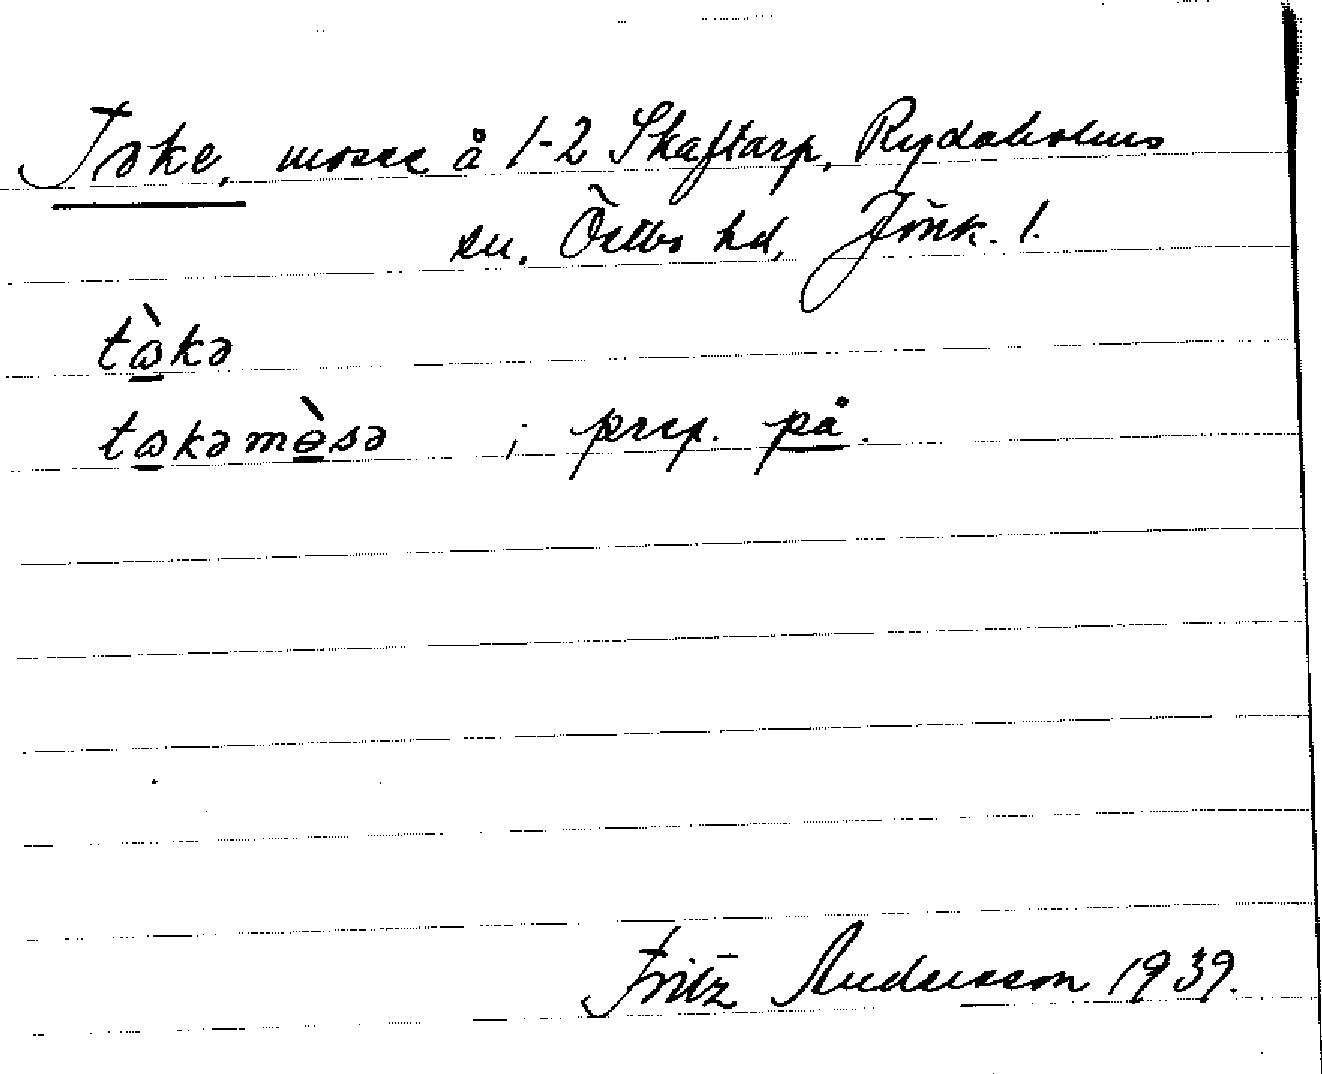 Toke, mosse å 1-2 Skaftarp, Rydaholms
sn. Östbo hd, Jönk. l.
tò̱kə
to̱kəmò̱sə ; prep. på.
Fritz Andersson 1939.